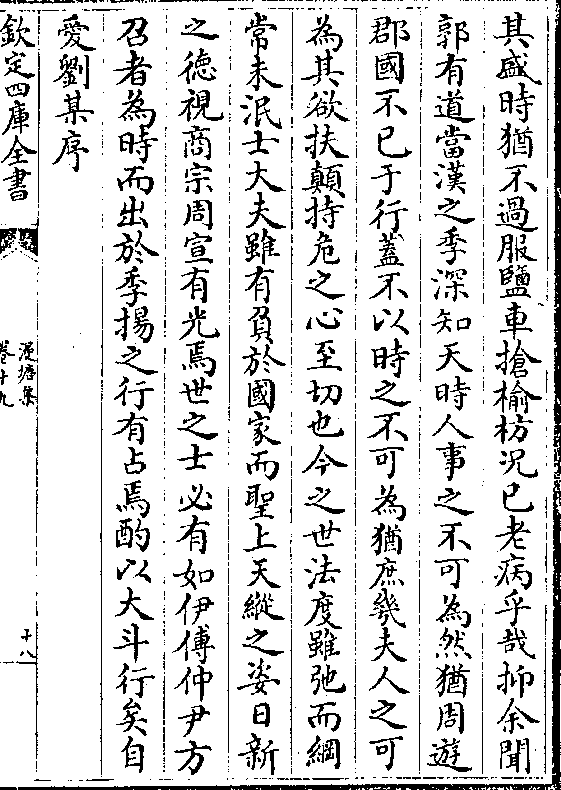 其盛時猶不過服鹽車搶榆枋況已老病乎哉抑余聞
郭有道當漢之季深知天時人事之不可為然猶周遊
郡國不已于行蓋不以時之不可為猶庶幾夫人之可
為其欲扶顛持危之心至切也今之世法度雖弛而綱
常未泯士大夫雖有負於國家而聖上天縱之姿日新
之徳視商宗周宣有光焉世之士必有如伊傅仲尹方
召者為時而出於季揚之行有占焉酌以大斗行矣自
愛劉某序
欽定四庫全書
漫塘集
卷十九
十八